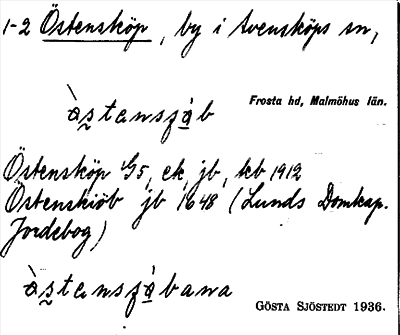 1-2 Östensköp, by i Svensköps sn,
Frosta hd, Malmöhus län.
Östensköp GS, ek, jb, kb 1912
Östenskiöb jb 1648 (Lunds Domkap.
Jordebog)
GÖSTA SJÖSTEDT 1936.